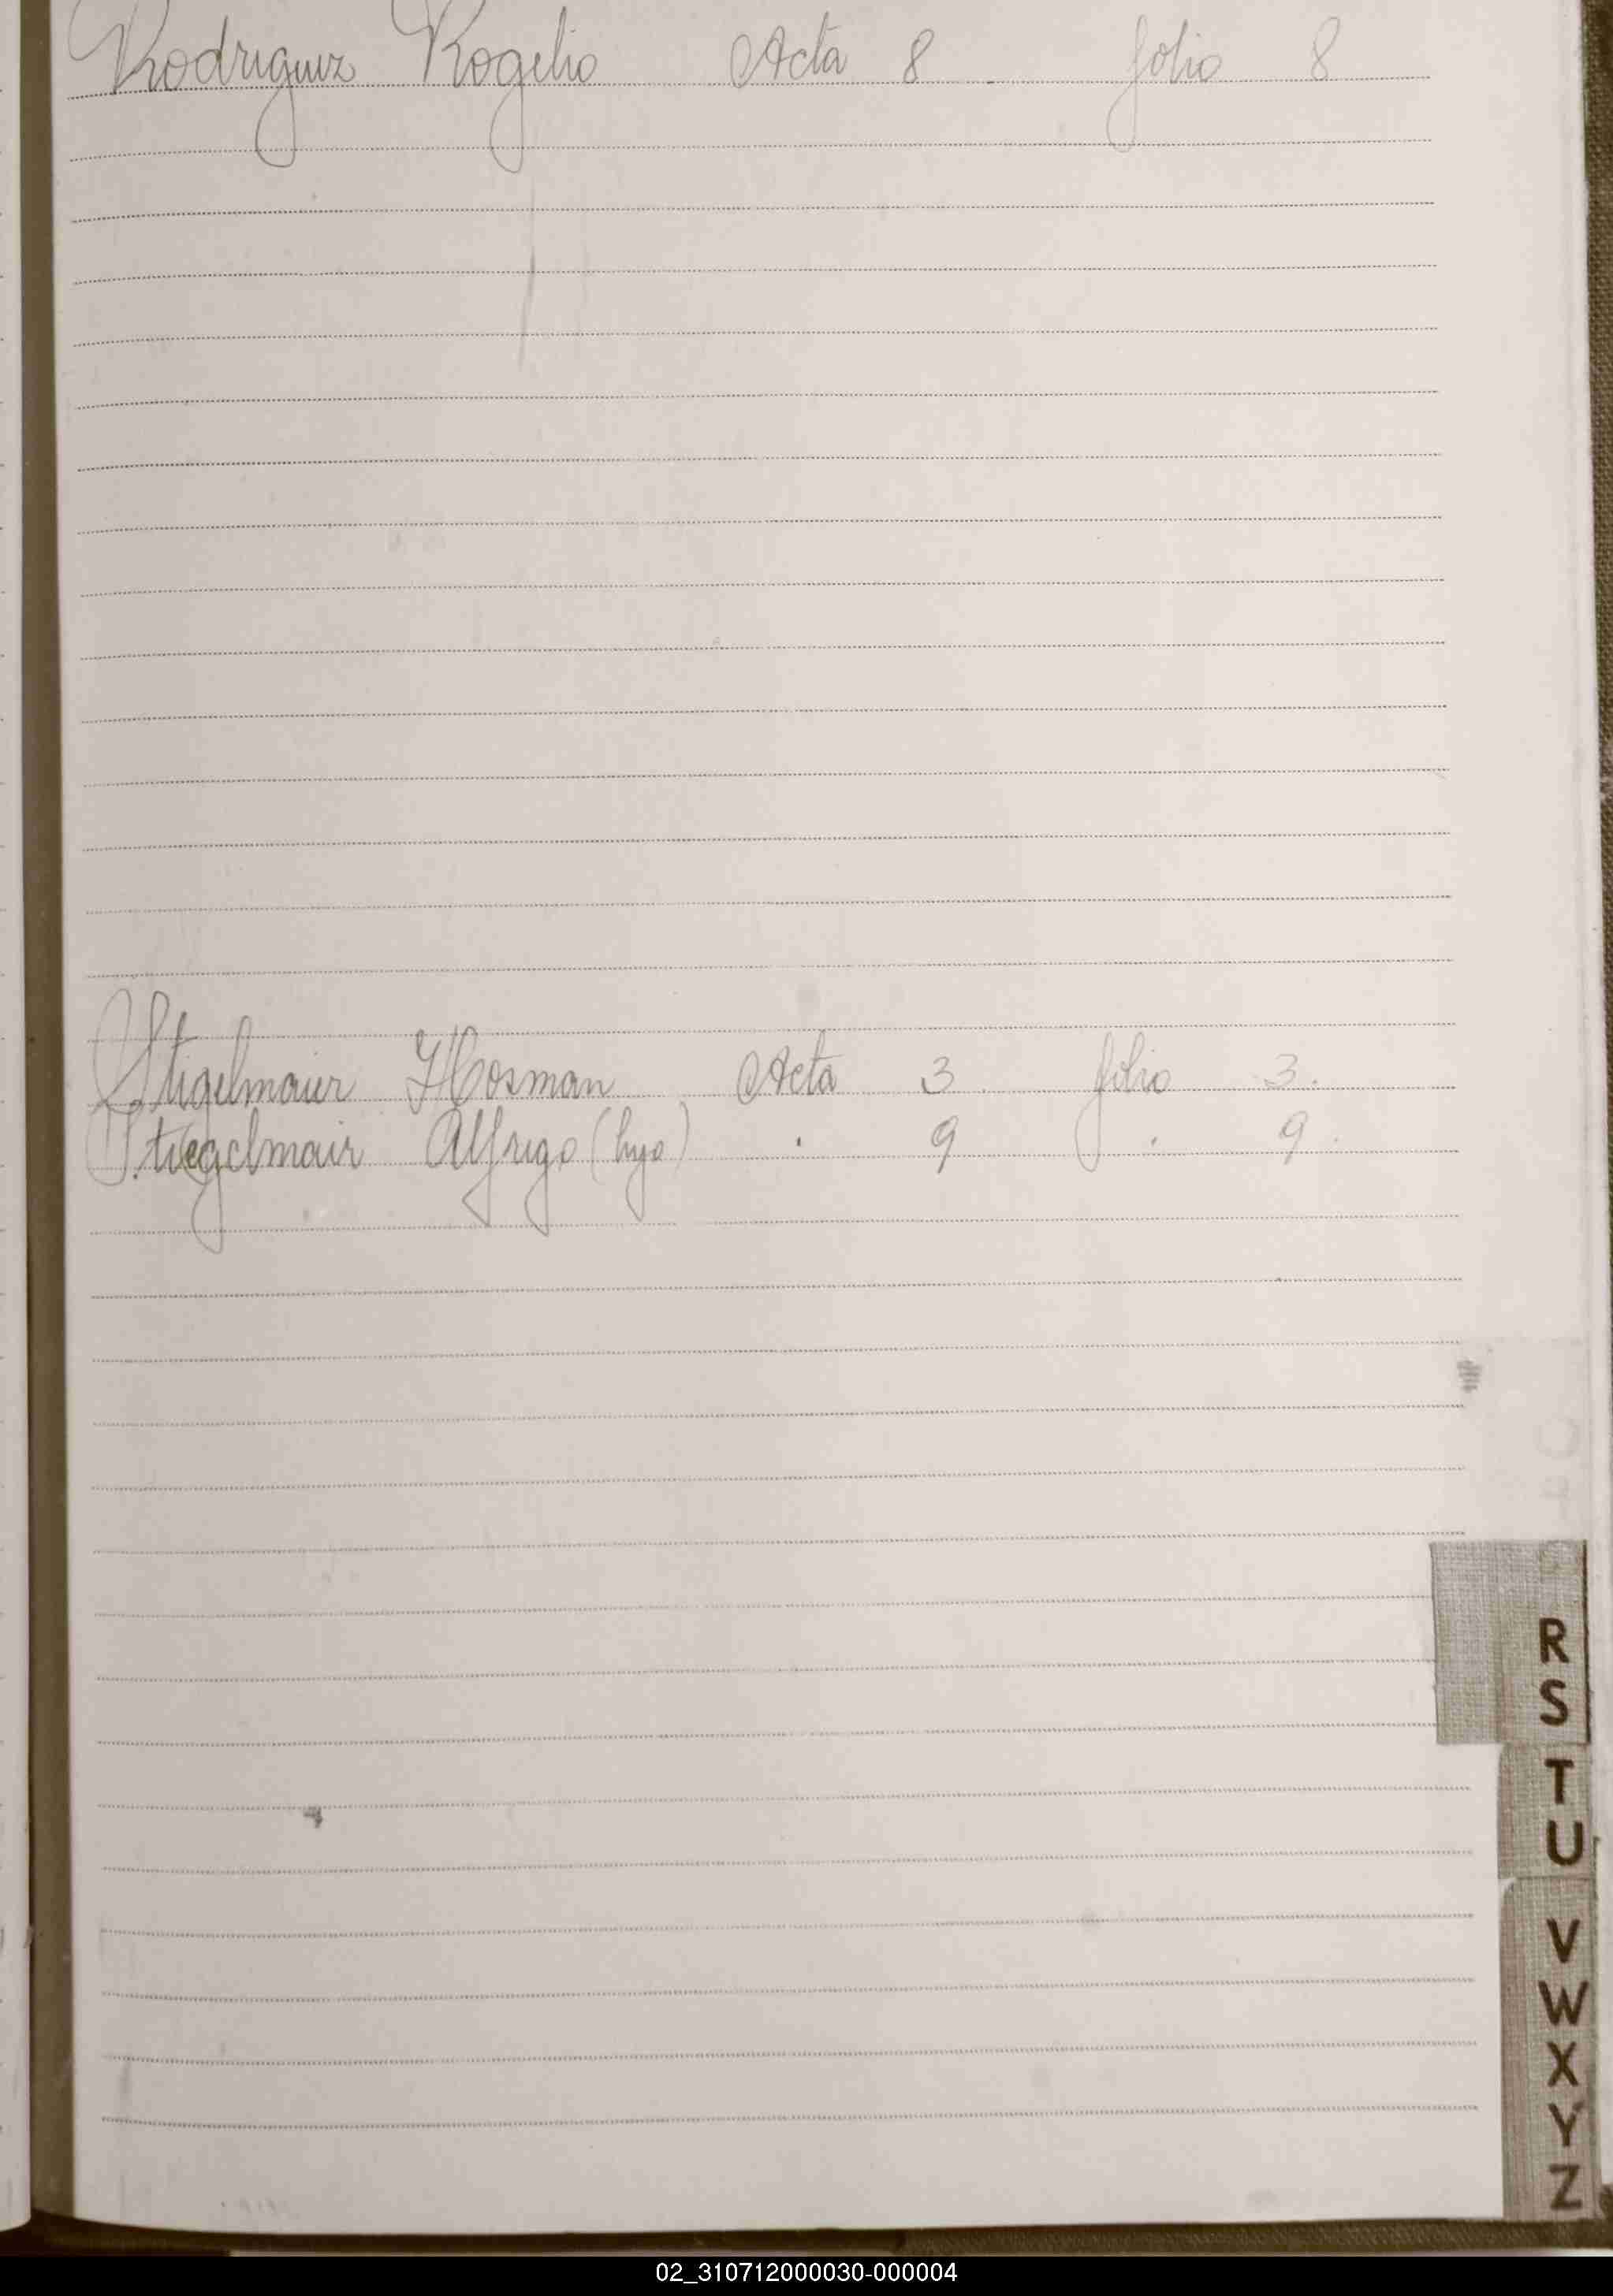 Rodriguez Rogelio Acta 8 folio 8
Stigelmaier Hosman Acta 3. folio 3.
Stiegelmair Alfrigo (hijo) . 9 . 9.
R
S
T
U
V
W
X
Y
Z
02_310712000030-000004